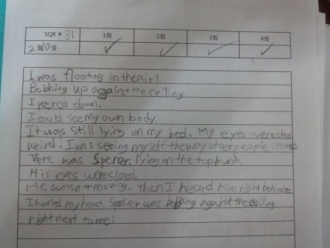 SQR # 31 1회 2회 3회 4회
I was floating in the air!
Bobbing up against the ceiling.
I peered down.
I could see my own body.
It was still lying on my bed. My eyes were closed
weird. I was seeing myself the way other people
were was Spencer, lying on the top bunk.
His eyes were closed.
He was Then I heard him right behind
I turned my head. Spencer was bobbing against the ceiling
right next to me!